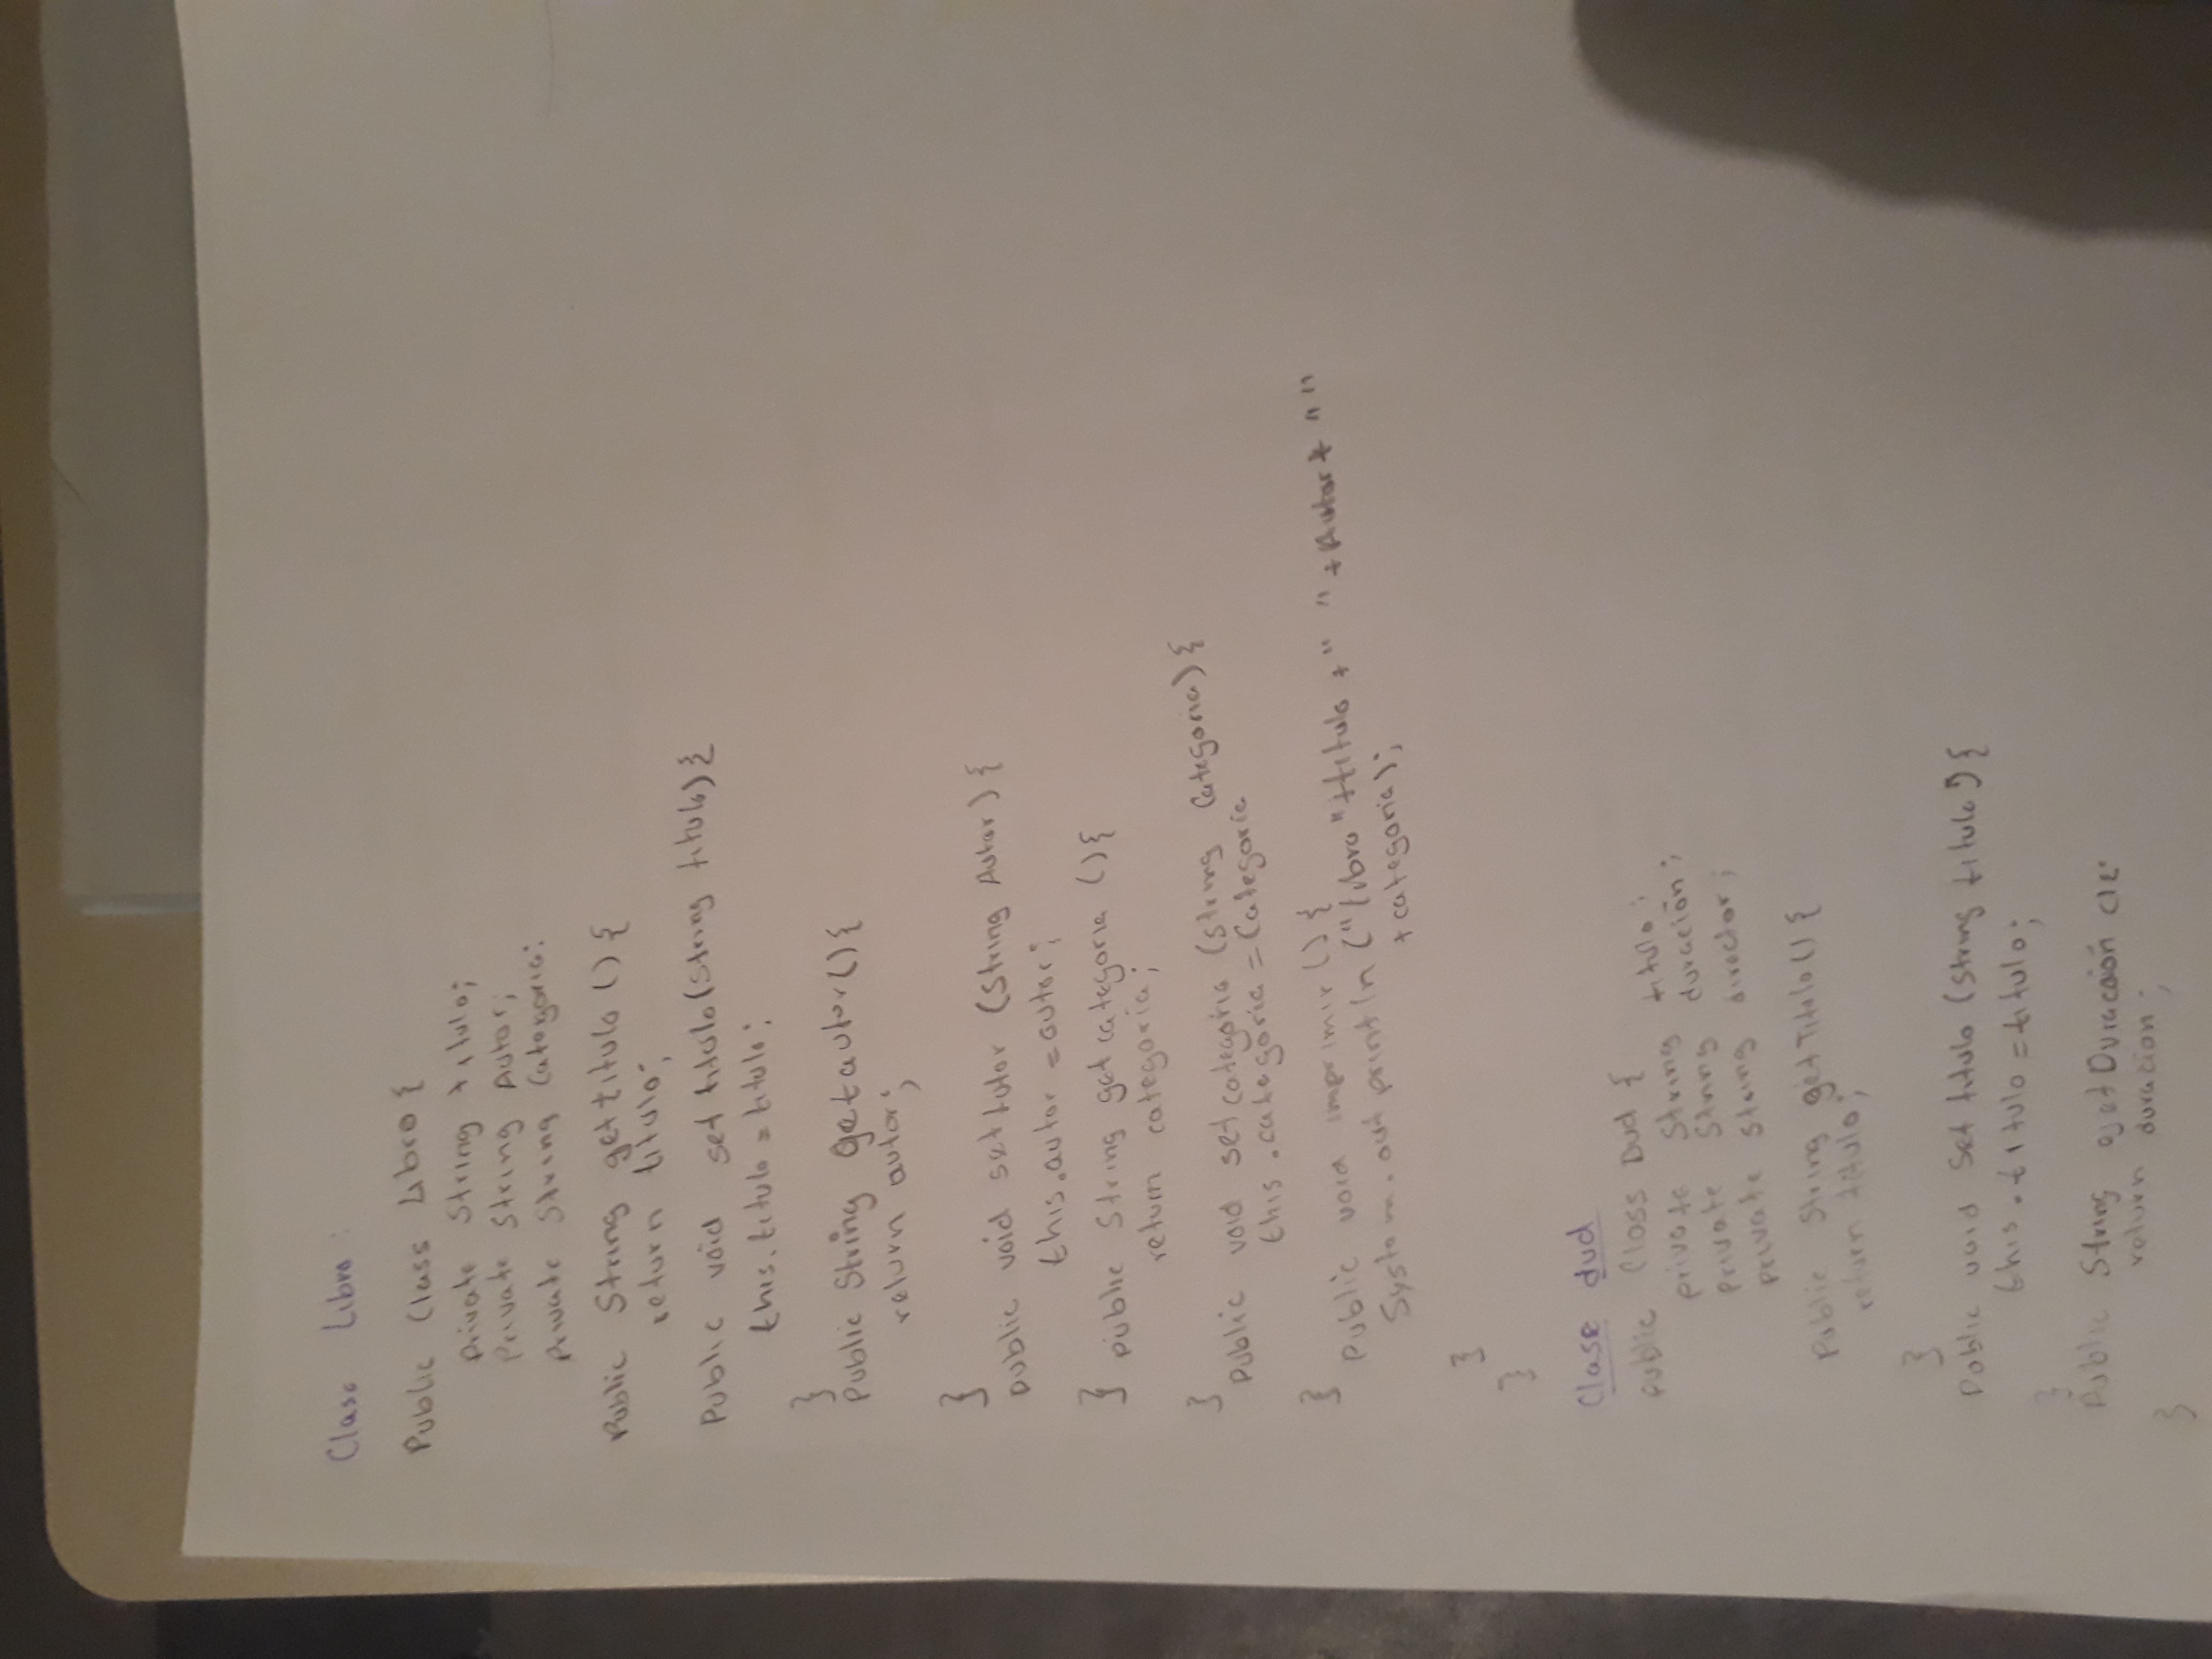 Clase Libro:
Public Class Libro {
private String titulo;
Private String Autor;
Private String Categoria;
Public String get titulo () {
return titulo;
Public void set titulo (String titulo) {
this.titulo = titulo;
}
Public String Get autor () {
return autor;
}
public void set tutor (String Autor) {
this.autor = autor;
} public String get categoria () {
return categoria;
}
Public void set categoria (String Categoria) {
this.categoria = Categoria
}
Public void imprimir () {
System.out println ("libro" + titulo + " " + Autor + " "
+ categoria);
}
}
Clase dud
public Class Dud {
private String titulo;
private String duración;
private String director;
Public String get Titulo () {
return titulo;
}
Public void Set titulo (String titulo) {
this.titulo = titulo;
}
Public String get Duracaión
return duracion;
}